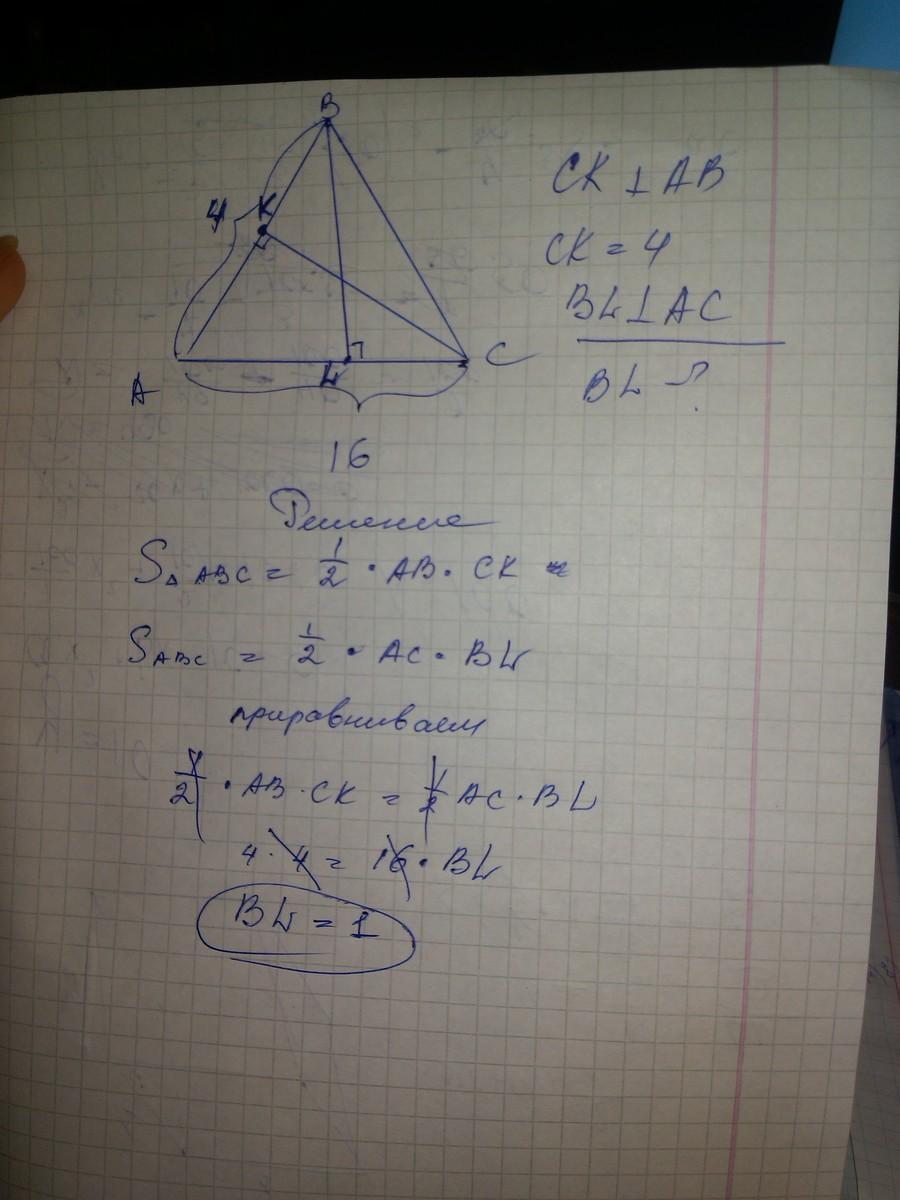 B
4 K
CK ⊥ AB
CK = 4
BL ⊥ AC
BL - ?
A L C
16
Решение
S△ABC = 1/2 · AB · CK =
SABC = 1/2 · AC · BL
приравниваем
1/2 · AB · CK = 1/2 AC · BL
4 · 4 = 16 · BL
BL = 1